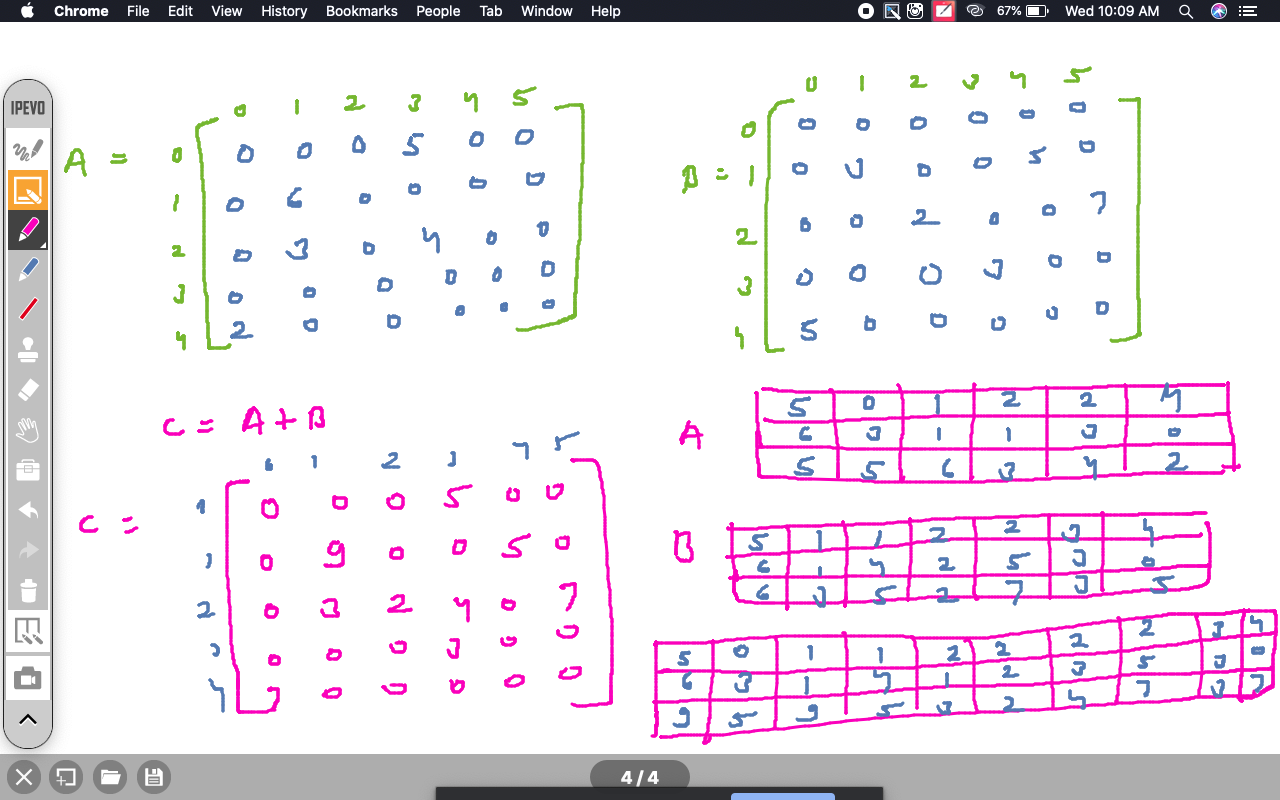 Chrome File Edit View History Bookmarks People Tab Window Help 67% Wed 10:09 AM
IPEVO
0 1 2 3 4 5
A = 0 0 0 0 5 0 0
1 0 6 0 0 0 0
2 0 3 0 4 0 0
3 0 0 0 0 0 0
4 2 0 0 0 0 0
0 1 2 3 4 5
0 0 0 0 0 0 0
B = 1 0 3 0 0 5 0
2 0 0 2 0 0 7
3 0 0 0 3 0 0
4 5 0 0 0 0 0
C = A + B
0 1 2 3 4 5
0 0 0 5 0 0
C = 1 0 9 0 0 5 0
2 0 3 2 4 0 7
3 0 0 0 3 0 0
4 7 0 0 0 0 0
A
5 0 1 2 2 4
6 3 1 1 3 0
5 5 6 3 4 2
B
5 1 1 2 2 3 4
6 1 4 2 5 3 0
6 3 5 2 7 3 5
5 0 1 1 2 2 2 2 3 4
6 3 1 4 1 2 3 5 3 0
9 5 9 5 3 2 4 7 3 7
4 / 4